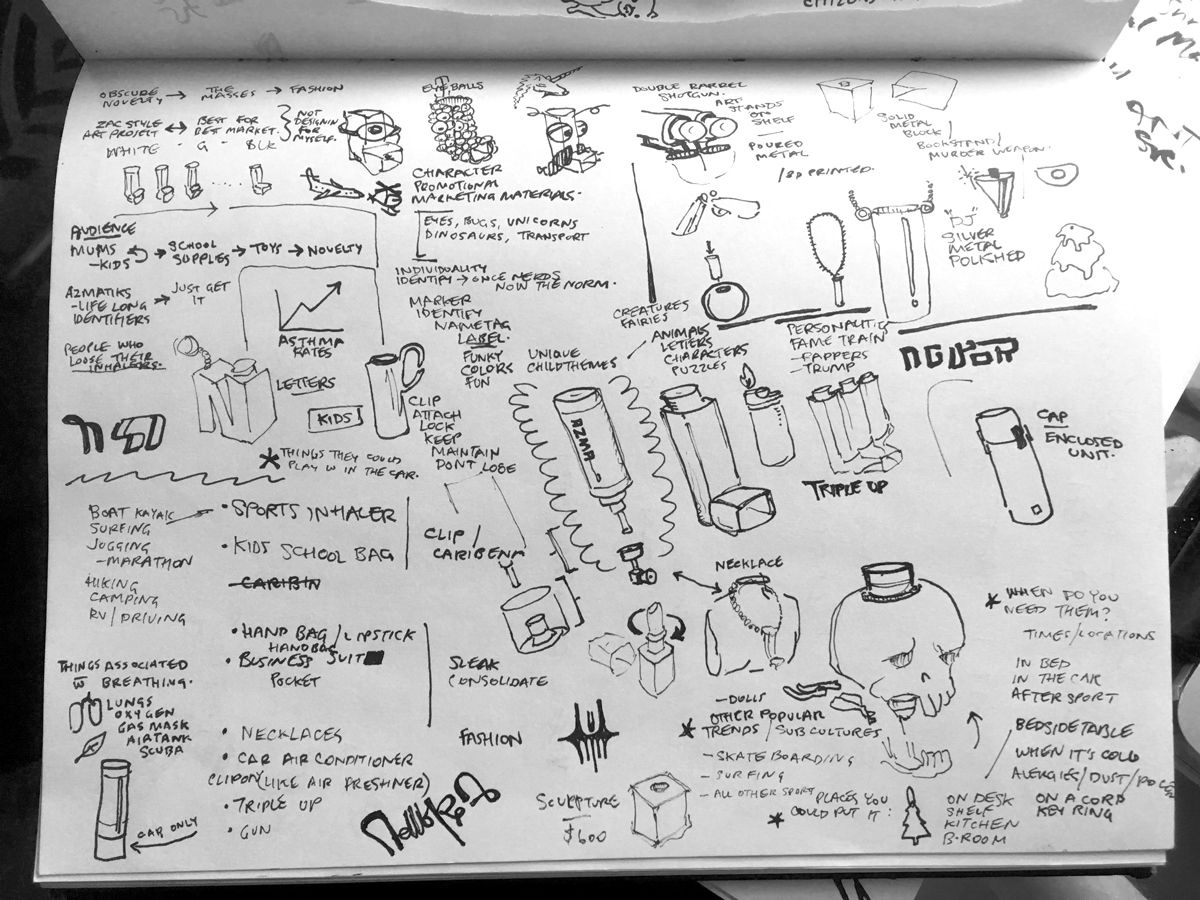 OBSCURE NOVELTY → THE MASSES → FASHION
ZAC STYLE ART PROJECT ↔ BEST FOR DEST MARKET.
NOT DESIGNIN FOR MYSELF.
WHITE - G - BLK
EYEBALLS
CHARACTER
PROMOTIONAL
MARKETING MATERIALS.
EYES, BUGS, UNICORNS
DINOSAURS, TRANSPORT
DOUBLE BARREL
SHOTGUN.
ART
STANDS
ON
SHELF
POURED
METAL
/3D PRINTED.
SOLID
METAL
BLOCK/
BOOKSTAND/
MURDER WEAPON.
"DJ"
SILVER
METAL
POLISHED
AUDIENCE
MUMS
-KIDS
→ SCHOOL SUPPLES → TOYS → NOVELTY
AZMATIKS
-LIFE LONG
IDENTIFIERS
→ JUST GET
IT
PEOPLE WHO
LOOSE THEIR
INHALERS.
ASTHMA
RATES
LETTERS
KIDS
INDIVIDUALITY
IDENTIFY → ONCE NERDS
NOW THE NORM.
MARKER
IDENTIFY
NAMETAG
LABEL.
FUNKY
COLORS
FUN
UNIQUE
CHILDTHEMES
CREATURES
FAIRIES
ANIMALS
LETTERS
CHARACTERS
PUZZLES
PERSONALITIE
FAME TRAIN
-RAPPERS
-TRUMP
CLIP
ATTACH
LOCK
KEEP
MAINTAIN
DONT LOSE
* THINGS THEY COULD
PLAY W IN THE CAR.
AZMA
TRIPLE UP
CAP
ENCLOSED
UNIT.
BOAT KAYAK
SURFING
JOGGING
-MARATHON
HIKING
CAMPING
RV/DRIVING
• SPORTS INHALER
• KIDS SCHOOL BAG
CARIBIN
CLIP/
CARIBENA
• HAND BAG/LIPSTICK
HANDBAG
• BUSINESS SUIT
POCKET
SLEAK
CONSOLIDATE
NECKLACE
THINGS ASSOCIATED
W BREATHING.
LUNGS
OXYGEN
GAS MASK
AIRTANK
SCUBA
CAP ONLY
• NECKLACES
• CAR AIR CONDITIONER
CLIPON (LIKE AIR FRESHNER)
• TRIPLE UP
• GUN
FASHION
SCULPTURE
$600
-DOLLS
* OTHER POPULAR
TRENDS/SUB CULTURES
-SKATE BOARDING
-SURFING
-ALL OTHER SPORT
* PLACES YOU
COULD PUT IT:
* WHEN DO YOU
NEED THEM?
TIMES/LOCATIONS
IN BED
IN THE CAR
AFTER SPORT
BEDSIDE TABLE
WHEN IT'S COLD
ALERGIES/DUST/
ON DESK
SHELF
KITCHEN
B-ROOM
ON A CORD
KEY RING